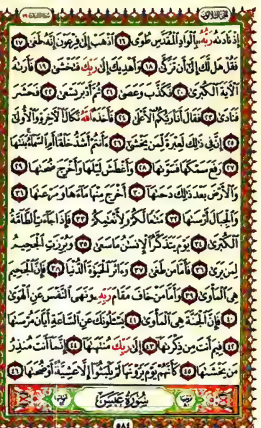 الجزء الثلاثون سورة النازعات ٧٩
إِذْ نَادَىٰهُ رَبُّهُۥ بِٱلْوَادِ ٱلْمُقَدَّسِ طُوًى ١٦ ٱذْهَبْ إِلَىٰ فِرْعَوْنَ إِنَّهُۥ طَغَىٰ ١٧
فَقُلْ هَل لَّكَ إِلَىٰٓ أَن تَزَكَّىٰ ١٨ وَأَهْدِيَكَ إِلَىٰ رَبِّكَ فَتَخْشَىٰ ١٩ فَأَرَىٰهُ
ٱلْءَايَةَ ٱلْكُبْرَىٰ ٢٠ فَكَذَّبَ وَعَصَىٰ ٢١ ثُمَّ أَدْبَرَ يَسْعَىٰ ٢٢ فَحَشَرَ
فَنَادَىٰ ٢٣ فَقَالَ أَنَا۠ رَبُّكُمُ ٱلْأَعْلَىٰ ٢٤ فَأَخَذَهُ ٱللَّهُ نَكَالَ ٱلْءَاخِرَةِ وَٱلْأُولَىٰٓ
٢٥ إِنَّ فِى ذَٰلِكَ لَعِبْرَةً لِّمَن يَخْشَىٰٓ ٢٦ ءَأَنتُمْ أَشَدُّ خَلْقًا أَمِ ٱلسَّمَآءُ بَنَىٰهَا
٢٧ رَفَعَ سَمْكَهَا فَسَوَّىٰهَا ٢٨ وَأَغْطَشَ لَيْلَهَا وَأَخْرَجَ ضُحَىٰهَا ٢٩
وَٱلْأَرْضَ بَعْدَ ذَٰلِكَ دَحَىٰهَآ ٣٠ أَخْرَجَ مِنْهَا مَآءَهَا وَمَرْعَىٰهَا ٣١
وَٱلْجِبَالَ أَرْسَىٰهَا ٣٢ مَتَٰعًا لَّكُمْ وَلِأَنْعَٰمِكُمْ ٣٣ فَإِذَا جَآءَتِ ٱلطَّآمَّةُ
ٱلْكُبْرَىٰ ٣٤ يَوْمَ يَتَذَكَّرُ ٱلْإِنسَٰنُ مَا سَعَىٰ ٣٥ وَبُرِّزَتِ ٱلْجَحِيمُ
لِمَن يَرَىٰ ٣٦ فَأَمَّا مَن طَغَىٰ ٣٧ وَءَاثَرَ ٱلْحَيَوٰةَ ٱلدُّنْيَا ٣٨ فَإِنَّ ٱلْجَحِيمَ
هِىَ ٱلْمَأْوَىٰ ٣٩ وَأَمَّا مَنْ خَافَ مَقَامَ رَبِّهِۦ وَنَهَى ٱلنَّفْسَ عَنِ ٱلْهَوَىٰ
٤٠ فَإِنَّ ٱلْجَنَّةَ هِىَ ٱلْمَأْوَىٰ ٤١ يَسْـَٔلُونَكَ عَنِ ٱلسَّاعَةِ أَيَّانَ مُرْسَىٰهَا
٤٢ فِيمَ أَنتَ مِن ذِكْرَىٰهَآ ٤٣ إِلَىٰ رَبِّكَ مُنتَهَىٰهَآ ٤٤ إِنَّمَآ أَنتَ مُنذِرُ
مَن يَخْشَىٰهَا ٤٥ كَأَنَّهُمْ يَوْمَ يَرَوْنَهَا لَمْ يَلْبَثُوٓا۟ إِلَّا عَشِيَّةً أَوْ ضُحَىٰهَا ٤٦
سُورَةُ عَبَسَ
٥٨٤